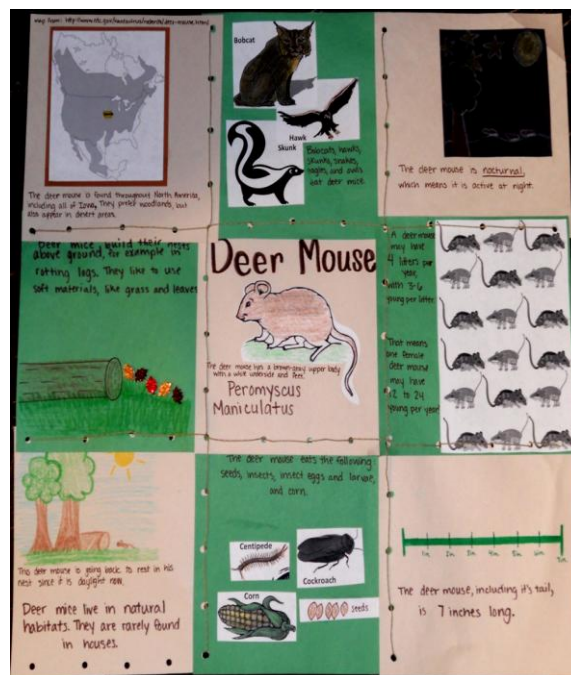 The deer mouse is found throughout North America,
including all of Iowa. They prefer woodlands, but
also appear in desert areas.
Bobcat
Hawk
Skunk
Bobcats, hawks,
skunks, snakes,
eagles, and owls
eat deer mice.
The deer mouse is nocturnal,
which means it is active at night.
Deer mice build their nests
above ground, for example in
rotting logs. They like to use
soft materials, like grass and leaves
Deer Mouse
The deer mouse has a brown-gray upper body
with a white underside and feet.
Peromyscus
Maniculatus
A deer mouse
may have
4 liters per
year,
with 3-6
young per litter
That means
one female
deer mouse
may have
12 to 24
young per year!
This deer mouse is going back to rest in his
nest since it is daylight now.
Deer mice live in natural
habitats. They are rarely found
in houses.
The deer mouse eats the following:
seeds, insects, insect eggs and larvae,
and corn.
Centipede
Cockroach
Corn
seeds
1in 2in 3in 4in 5in 6in 7in
The deer mouse, including it's tail,
is 7 inches long.